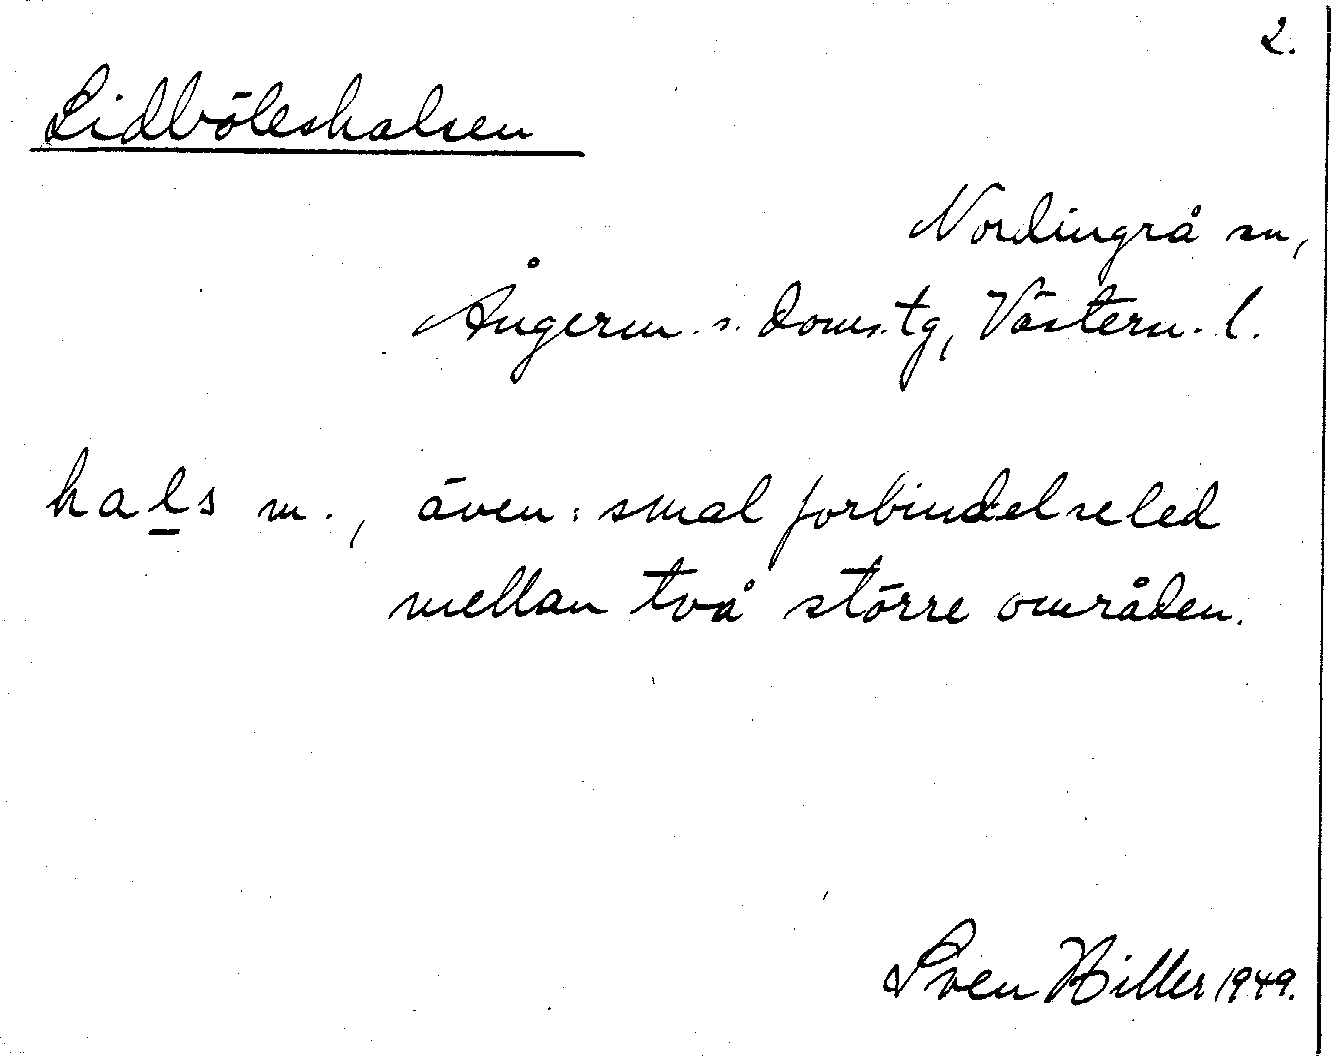 2.
Lidböleshalsen
Nordingrå sn,
Ångerm. s. doms. tg, Västern. l.
hals m., även: smal förbindelseled
mellan två större områden.
Sven Hiller 1949.